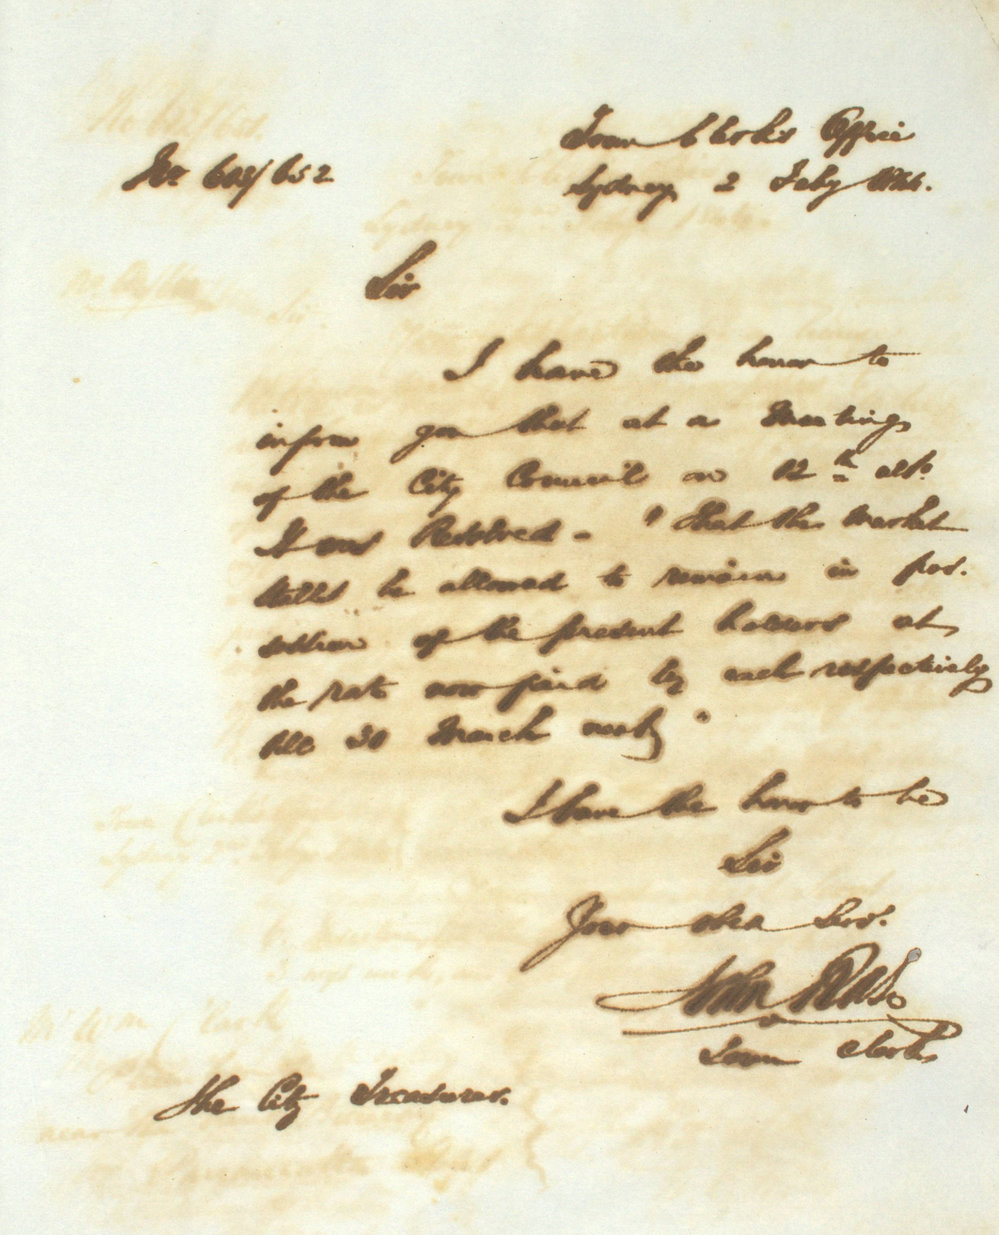 Town Clerks Office
No 648/652
Sydney 2 July 1846.
Sir
I have the honor to
inform you that at a Meeting
of the City Council on 12th ulto.
It was Resolved - "That the market
stalls be allowed to remain in pos.
session of the present holders at
the rate now paid by each respectively
till 30 March next"
I have the honor to be
Sir
Your obed Servt.
John Rule
Town Clerk
The City Treasurer.